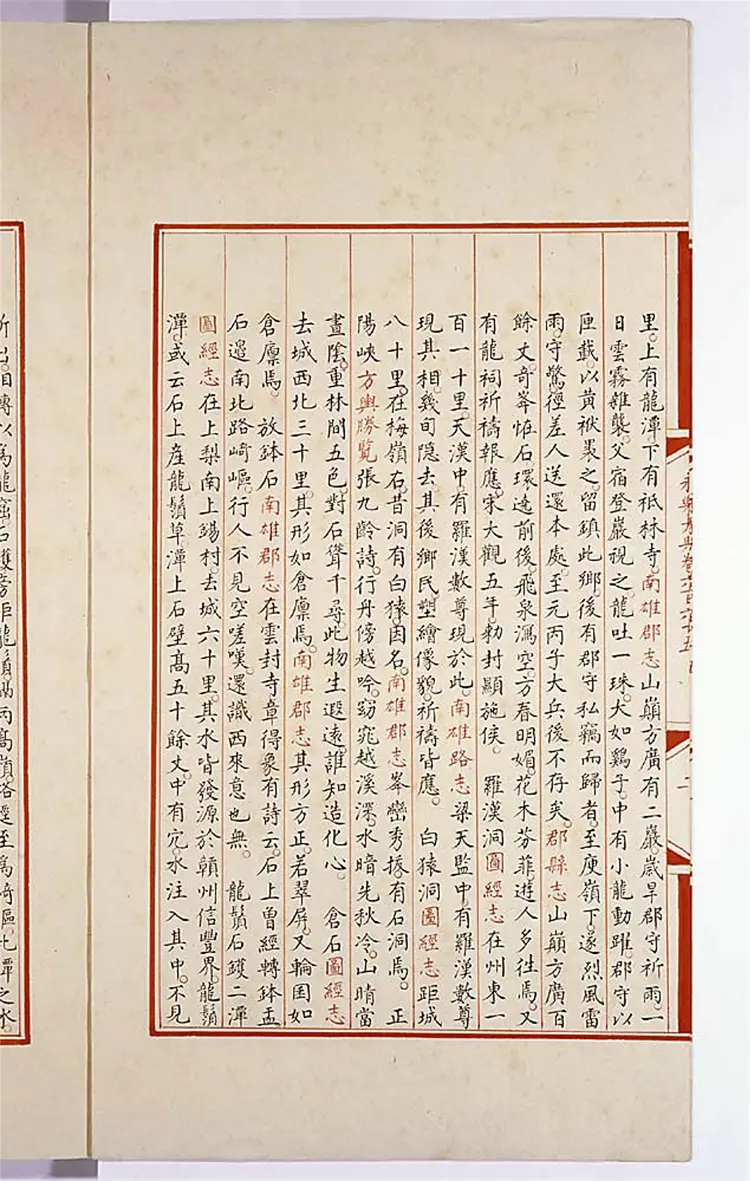 永樂大典卷六百六十五
二
里。上有龍潭下有祇林寺。南雄郡志山巔方廣有二巖。歲旱郡守祈雨。一
日雲霧雜襲。父宿登巖視之。龍吐一珠。大如鷄子。中有小龍動躍。郡守以
匣載。以黄袱褁之。留鎮此鄉。後有郡守私竊而歸者。至庾嶺下。遂烈風雷
雨。守驚。徑差人送還本處。至元丙子大兵後不存矣。郡縣志山巔方廣百
餘丈。竒峯恠石環遶前後。飛泉漏空。方春明媚。花木芬菲。遊人多徃焉。又
有龍祠祈禱報應。宋大觀五年。勑封顯施侯。 羅漢洞圖經志在州東一
百一十里。天漢中有羅漢數尊現於此。南雄路志梁天監中有羅漢數尊
現其相。幾旬隱去。其後鄉民塑繪像貌。祈禱皆應。 白猿洞圖經志距城
八十里。在梅嶺右。昔洞有白猿。因名。南雄郡志峯巒秀拔有石洞焉。 正
陽峽方輿勝覽張九齡詩。行舟傍越吟。窈窕越溪深。水暗先秋冷。山晴當
晝陰。重林間五色。對石聳千尋。此物生遐遠。誰知造化心。 倉石圖經志
去城西北三十里。其形如倉廪焉。南雄郡志其形方正。若翠屏。又輪囷如
倉廪焉。 放鉢石南雄郡志在雲封寺章得象有詩云。石上曾經轉鉢盂
石邉南北路崎嶇。行人不見空嗟嘆。還識西來意也無。 龍鬚石鑊二潭
圖經志在上梨南上錫村。去城六十里。其水皆發源於贑州信豐界。龍鬚
潭。或云石上産龍鬚草。潭上石壁高五十餘丈。中有穴。水注入其中。不見
所出。相轉以爲龍窟。石鑊旁距龍鬚隔兩高嶺。路逕至爲崎嶇。此潭之水。